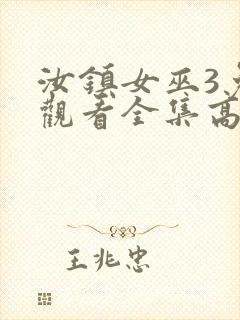 汝鎮女巫3
觀看全集高
王兆忠